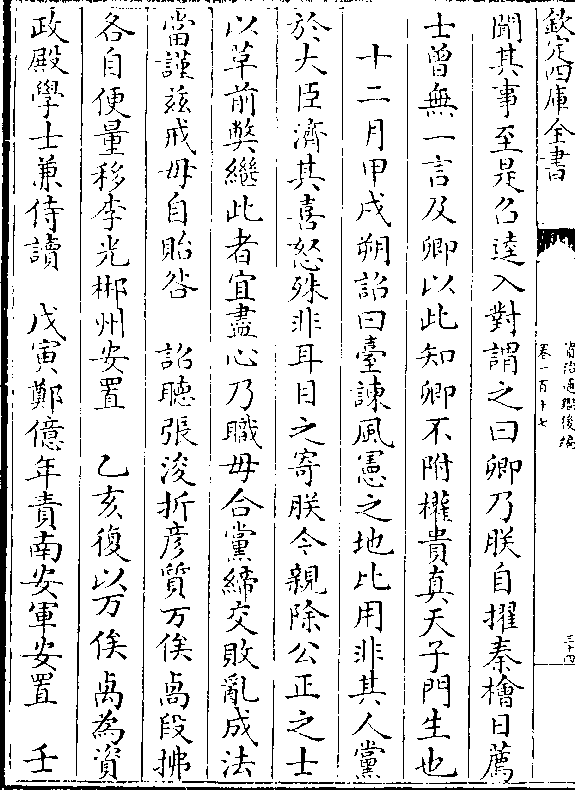 欽定四庫全書
資治通鑑後編
卷一百十七
三十四
聞其事至是召逵入對謂之曰卿乃朕自擢秦檜日薦
士曾無一言及卿以此知卿不附權貴真天子門生也
十二月甲戌朔詔曰臺諫風憲之地比用非其人黨
於大臣濟其喜怒殊非耳目之寄朕今親除公正之士
以革前弊繼此者宜盡心乃職毋合黨締交敗亂成法
當謹兹戒毋自貽咎　詔聽張浚折彦質万俟卨段拂
各自便量移李光郴州安置　乙亥復以万俟卨為資
政殿學士兼侍讀　戊寅鄭億年責南安軍安置　壬